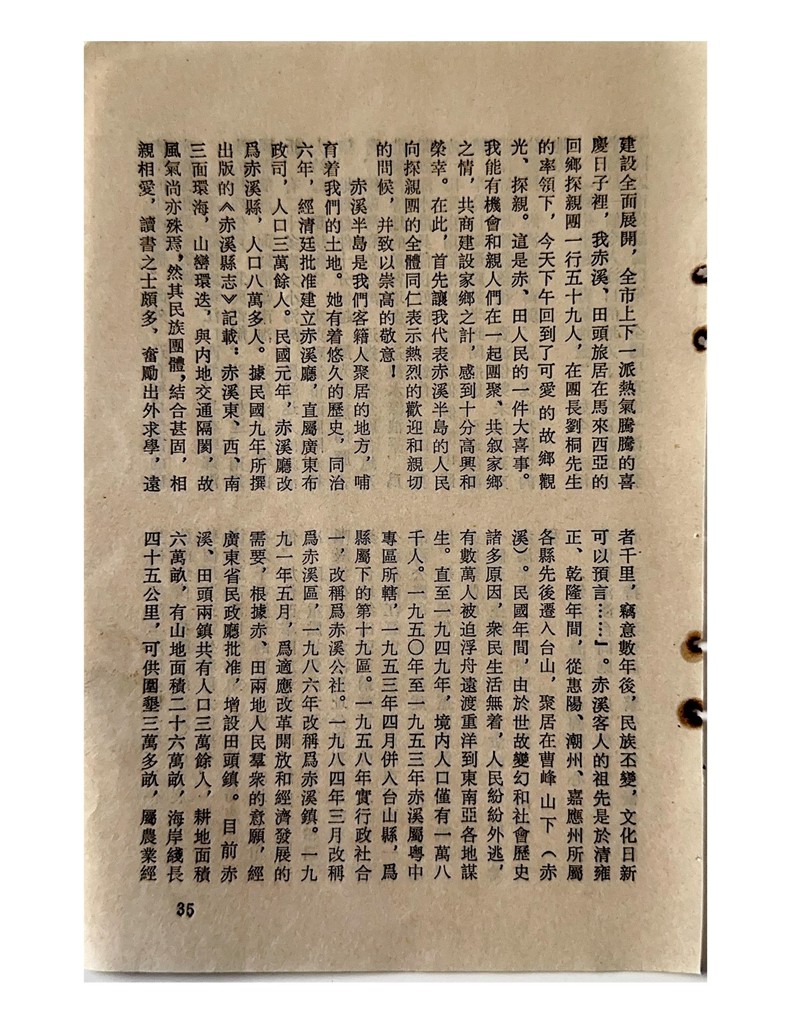 建設全面展開，全市上下一派熱氣騰騰的喜
慶日子裡，我赤溪、田頭旅居在馬來西亞的
回鄉探親團一行五十九人，在團長劉桐先生
的率領下，今天下午回到了可愛的故鄉觀
光、探親。這是赤、田人民的一件大喜事。
我能有機會和親人們在一起團聚、共叙家鄉
之情，共商建設家鄉之計，感到十分高興和
榮幸。在此，首先讓我代表赤溪半島的人民
向探親團的全體同仁表示熱烈的歡迎和親切
的問候，并致以崇高的敬意！
赤溪半島是我們客籍人聚居的地方，哺
育着我們的土地。她有着悠久的歷史，同治
六年，經清廷批准建立赤溪廳，直屬廣東布
政司，人口三萬餘人。民國元年，赤溪廳改
爲赤溪縣，人口八萬多人。據民國九年所撰
出版的《赤溪縣志》記載：赤溪東、西、南
三面環海，山巒環迭，與内地交通隔閡，故
風氣尚亦殊焉，然其民族團體，結合甚固，相
親相愛，讀書之士頗多，奮勵出外求學，遠
者千里，竊意數年後，民族丕變，文化日新
可以預言……」。赤溪客人的祖先是於清雍
正、乾隆年間，從惠陽、潮州、嘉應州所屬
各縣先後遷入台山，聚居在曹峰山下（赤
溪）。民國年間，由於世故變幻和社會歷史
諸多原因，衆民生活無着，人民紛紛外逃，
有數萬人被迫浮舟遠渡重洋到東南亞各地謀
生。直至一九四九年，境内人口僅有一萬八
千人。一九五〇年至一九五三年赤溪屬粵中
專區所轄，一九五三年四月併入台山縣，爲
縣屬下的第十九區。一九五八年實行政社合
一，改稱爲赤溪公社。一九八四年三月改稱
爲赤溪區，一九八六年改稱爲赤溪鎮。一九
九一年五月，爲適應改革開放和經濟發展的
需要，根據赤、田兩地人民羣衆的意願，經
廣東省民政廳批准，增設田頭鎮。目前赤
溪、田頭兩鎮共有人口三萬餘入，耕地面積
六萬畝，有山地面積二十六萬畝，海岸綫長
四十五公里，可供圍墾三萬多畝，屬農業經
35